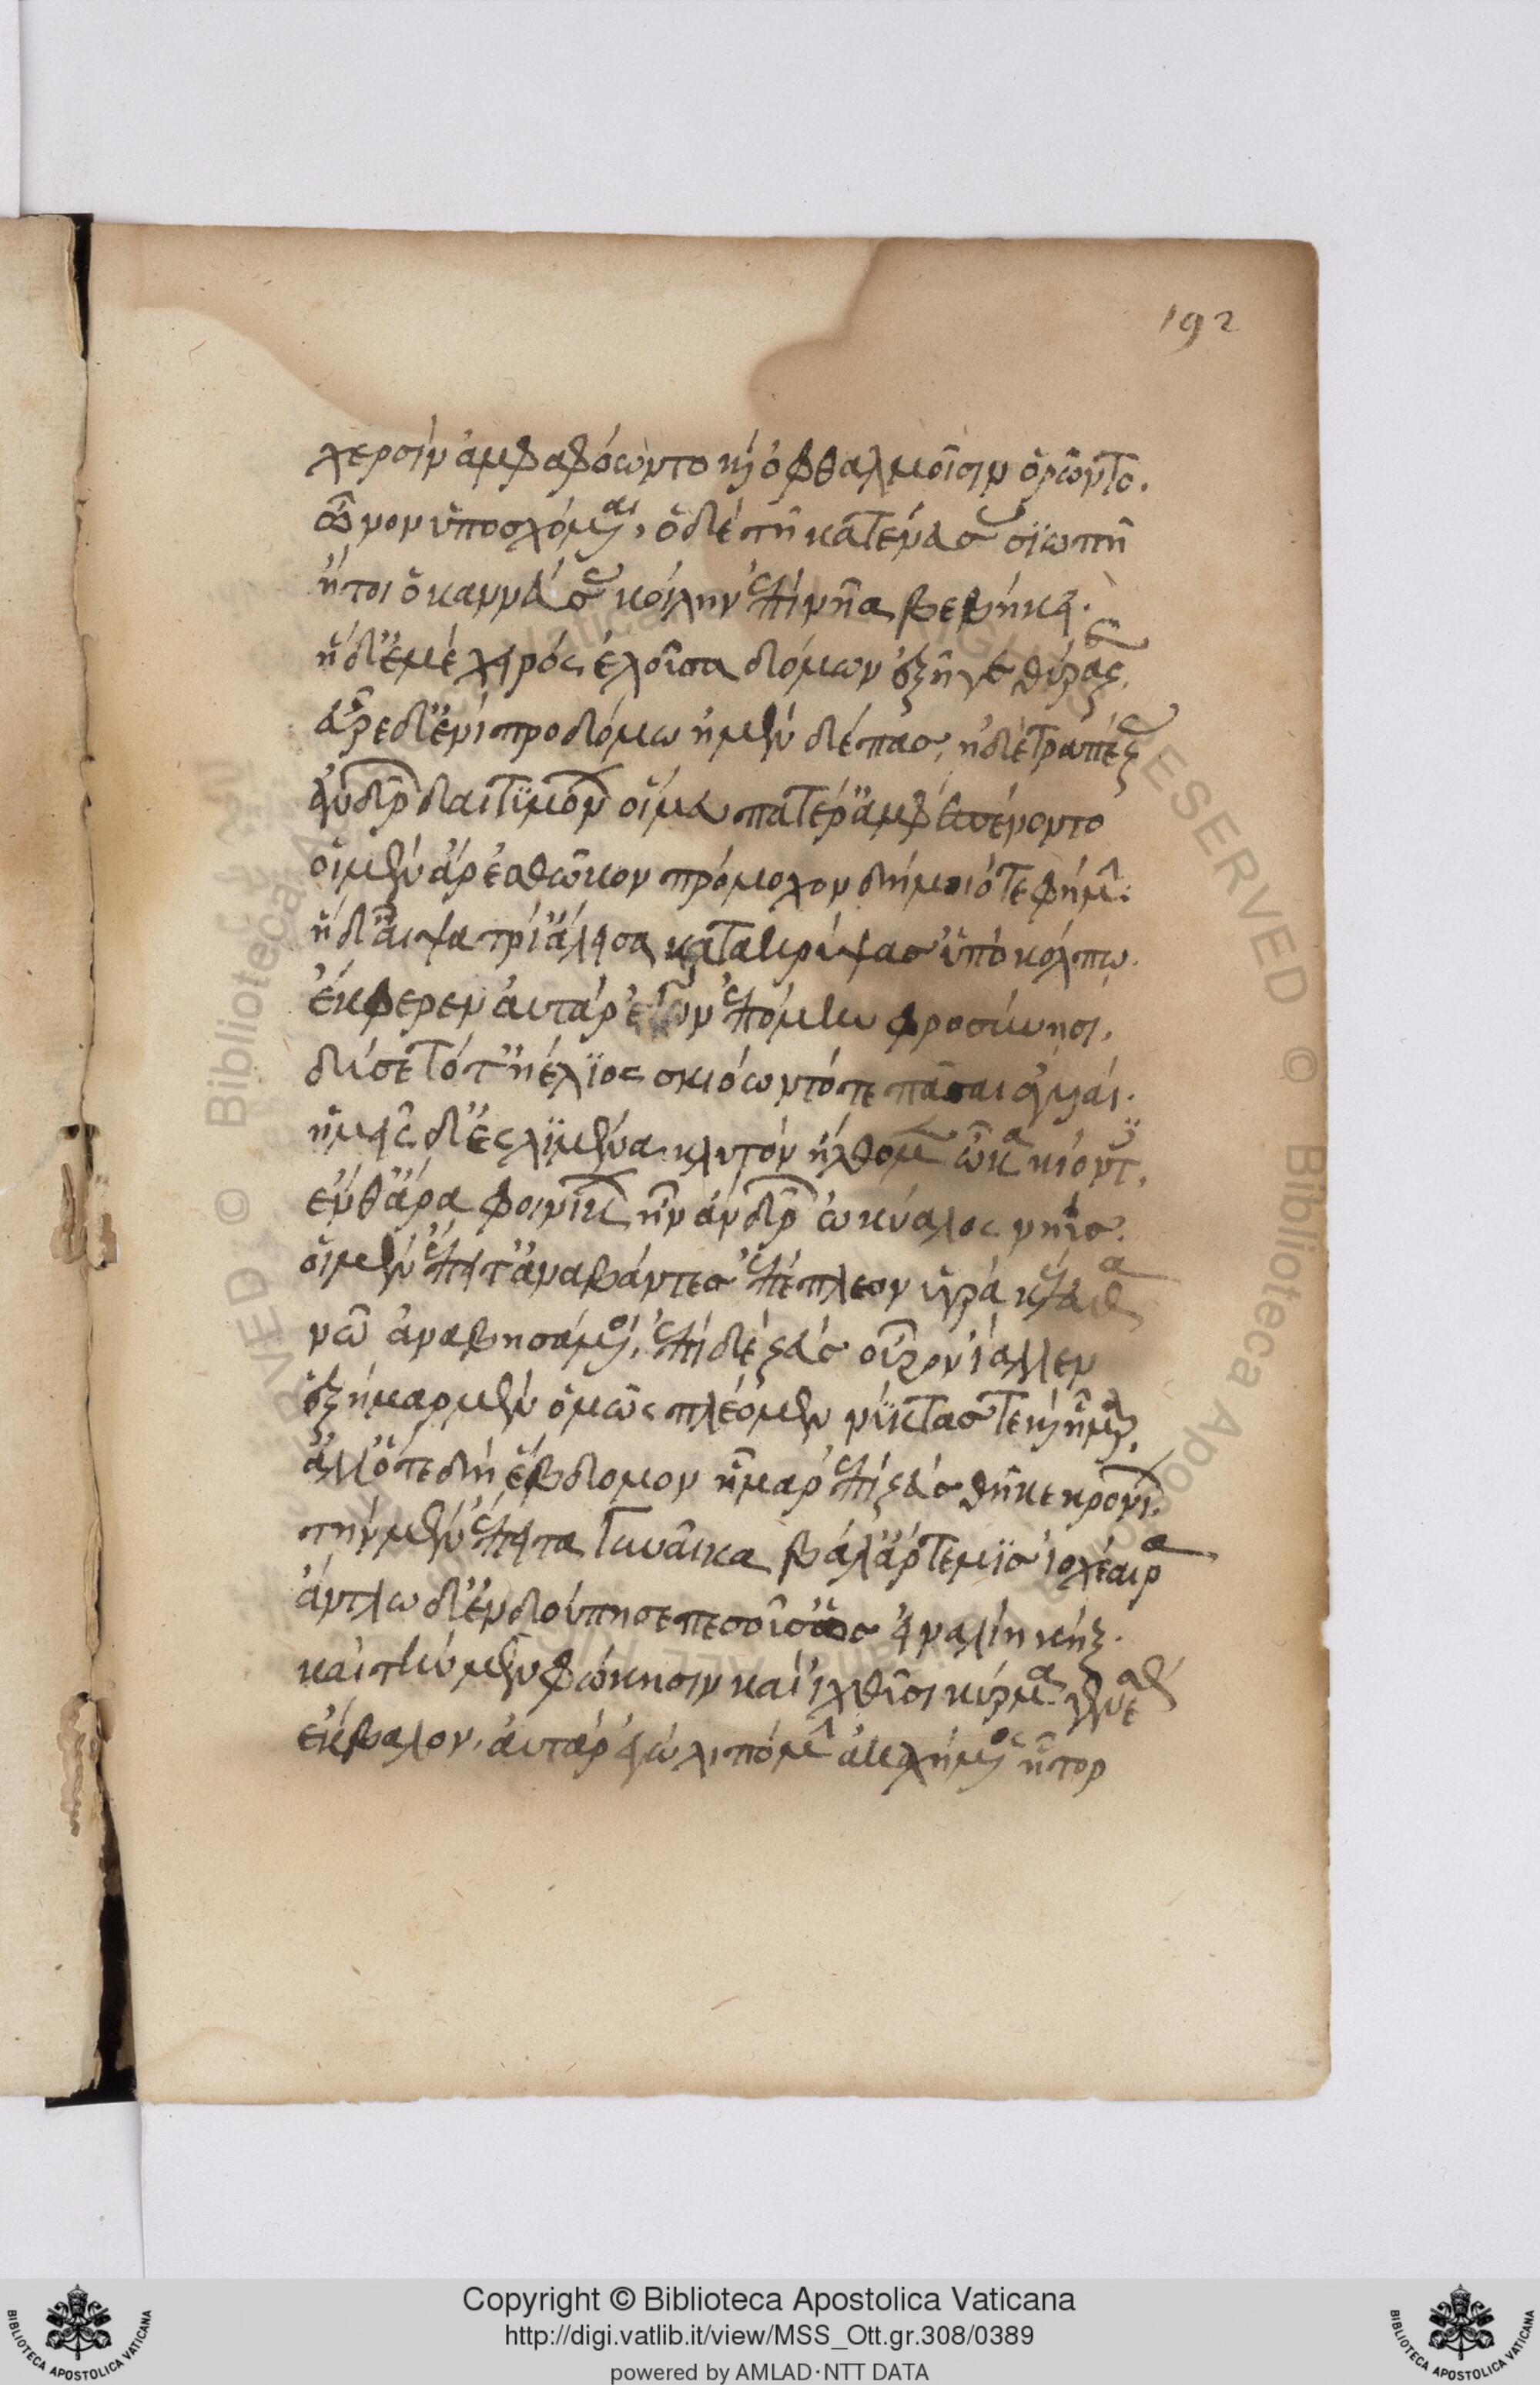 192
χερσίν ἀμφαφόωντο καὶ ὀφθαλμοῖσιν ὁρῶντο.
ὦνον ὑποσχόμεναι, ὁ δὲ τῆ κατένευσε σϊωπῆ
ἤτοι ὁ καννεύσας κοίλην ἐπὶ νῆα βεβήκει.
ἡ δ' ἐμὲ χειρός ἑλοῦσα δόμων ἐξῆγε θύραζε,
εὗρε δ' ἐνὶ προδόμω ἠμὲν δέπας, ἠδὲ τραπέζας
ἀνδρῶν δαιτϋμόνων οἵ μευ πατέρ' ἀμφεπένοντο
οἱ μὲν ἄρ' ἐς θῶκον πρόμολον δήμοιό τε φῆμιν:
ἡ δ' αἶψα τρί' ἄλεισα κατακρύψασ' ὑπὸ κόλπω.
ἔκφερεν αὐτάρ ἐγὼν ἑπόμην ἀφροσύνησι,
δύσετό τ' ἠέλϊος σκιόωντό τε πᾶσαι ἀγυιαί.
ἡμεῖς δ' ἐς λϊμένα κλυτόν ἤλθομεν ὦκα κιόντες,
ἔνθ' ἄρα φοινίκων ἦν ἀνδρῶν ὠκύαλος νηῦς.
οἱ μὲν ἔπειτ' ἀναβάντες ἐπέπλεον ὑγρά κέλευθα
νὼ ἀναβησάμενοι, ἐπὶ δὲ ζεύς οὖρον ἴαλλεν
ἑξῆμαρ μὲν ὁμῶς πλέομεν νύκτας τε καὶ ἦμαρ,
ἀλλ' ὅτε δὴ ἕβδομον ἦμαρ ἐπὶ ζεύς θῆκε κρονίων.
τὴν μὲν ἔπειτα γυναῖκα βάλ' ἄρτεμϊς ἰοχέαιρα
ἄντλω δ' ἐνδούπησε πεσοῦσ' ὡς εἰναλίη κήξ.
καὶ τὴν μὲν φώκησιν καὶ ἰχθύσι κύρμα γενέσθαι
ἔκβαλον, αὐτάρ ἐγὼ λιπόμην ἀκαχήμενος ἦτορ
Copyright © Biblioteca Apostolica Vaticana
http://digi.vatlib.it/view/MSS_Ott.gr.308/0389
powered by AMLAD·NTT DATA